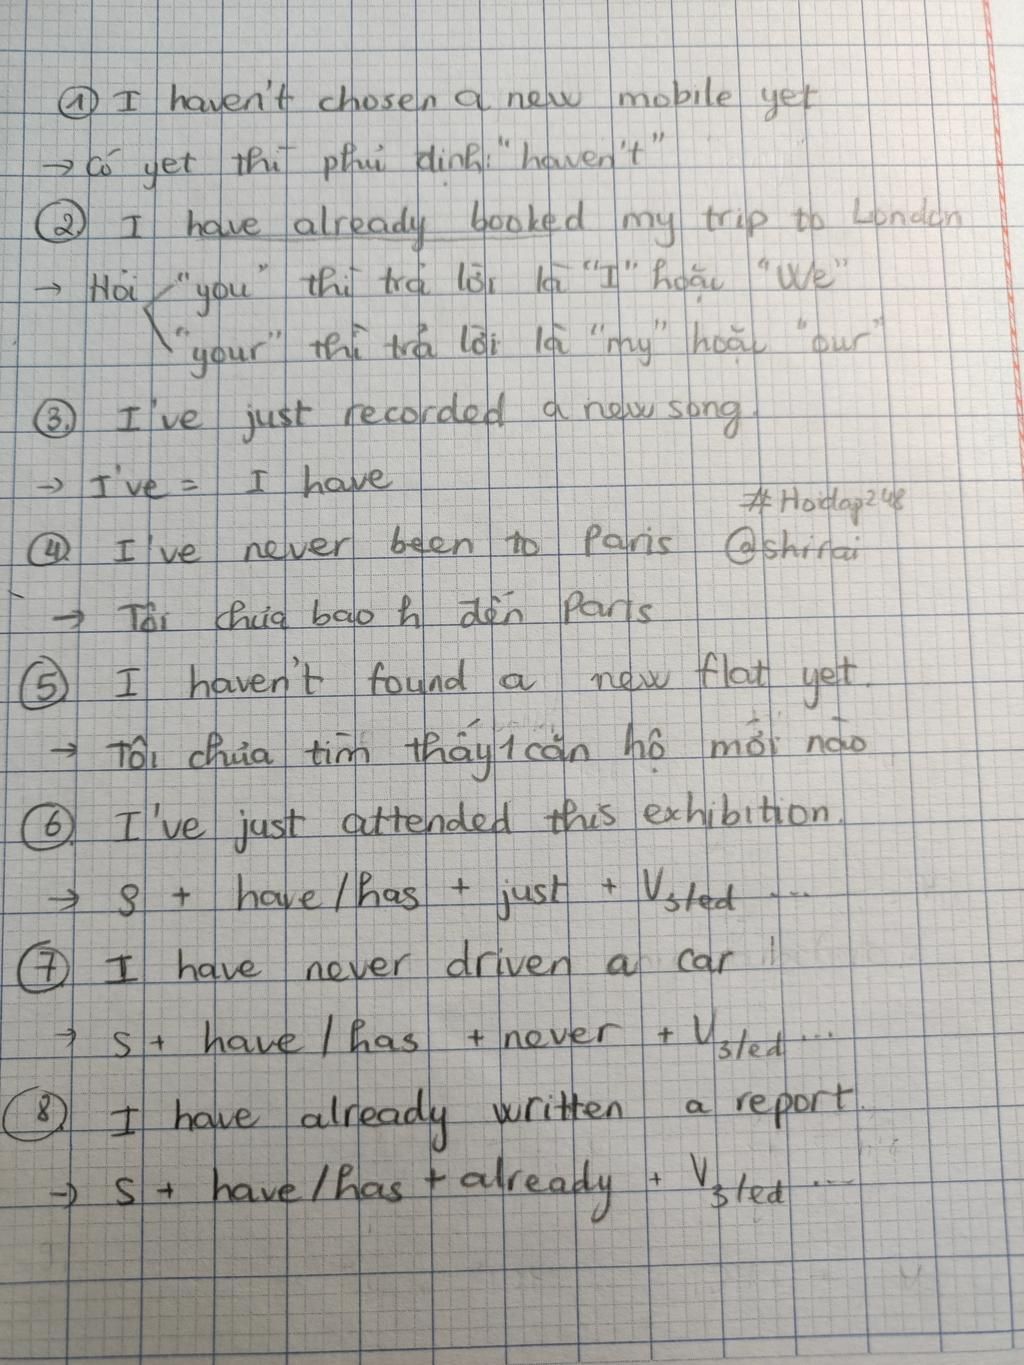 ① I haven't chosen a new mobile yet
→ Có yet thì phủ định: "haven't"
② I have already booked my trip to London
→ Hỏi "you" thì trả lời là "I" hoặc "We"
"your" thì trả lời là "my" hoặc "our"
③ I've just recorded a new song.
→ I've = I have
#Hoidap248
④ I've never been to Paris @shirai
→ Tôi chưa bao h đến Paris
⑤ I haven't found a new flat yet.
→ Tôi chưa tìm thấy 1 căn hộ mới nào
⑥ I've just attended this exhibition.
→ S + have/has + just + V3/ed ...
⑦ I have never driven a car
→ S + have/has + never + V3/ed ...
⑧ I have already written a report.
→ S + have/has + already + V3/ed ...